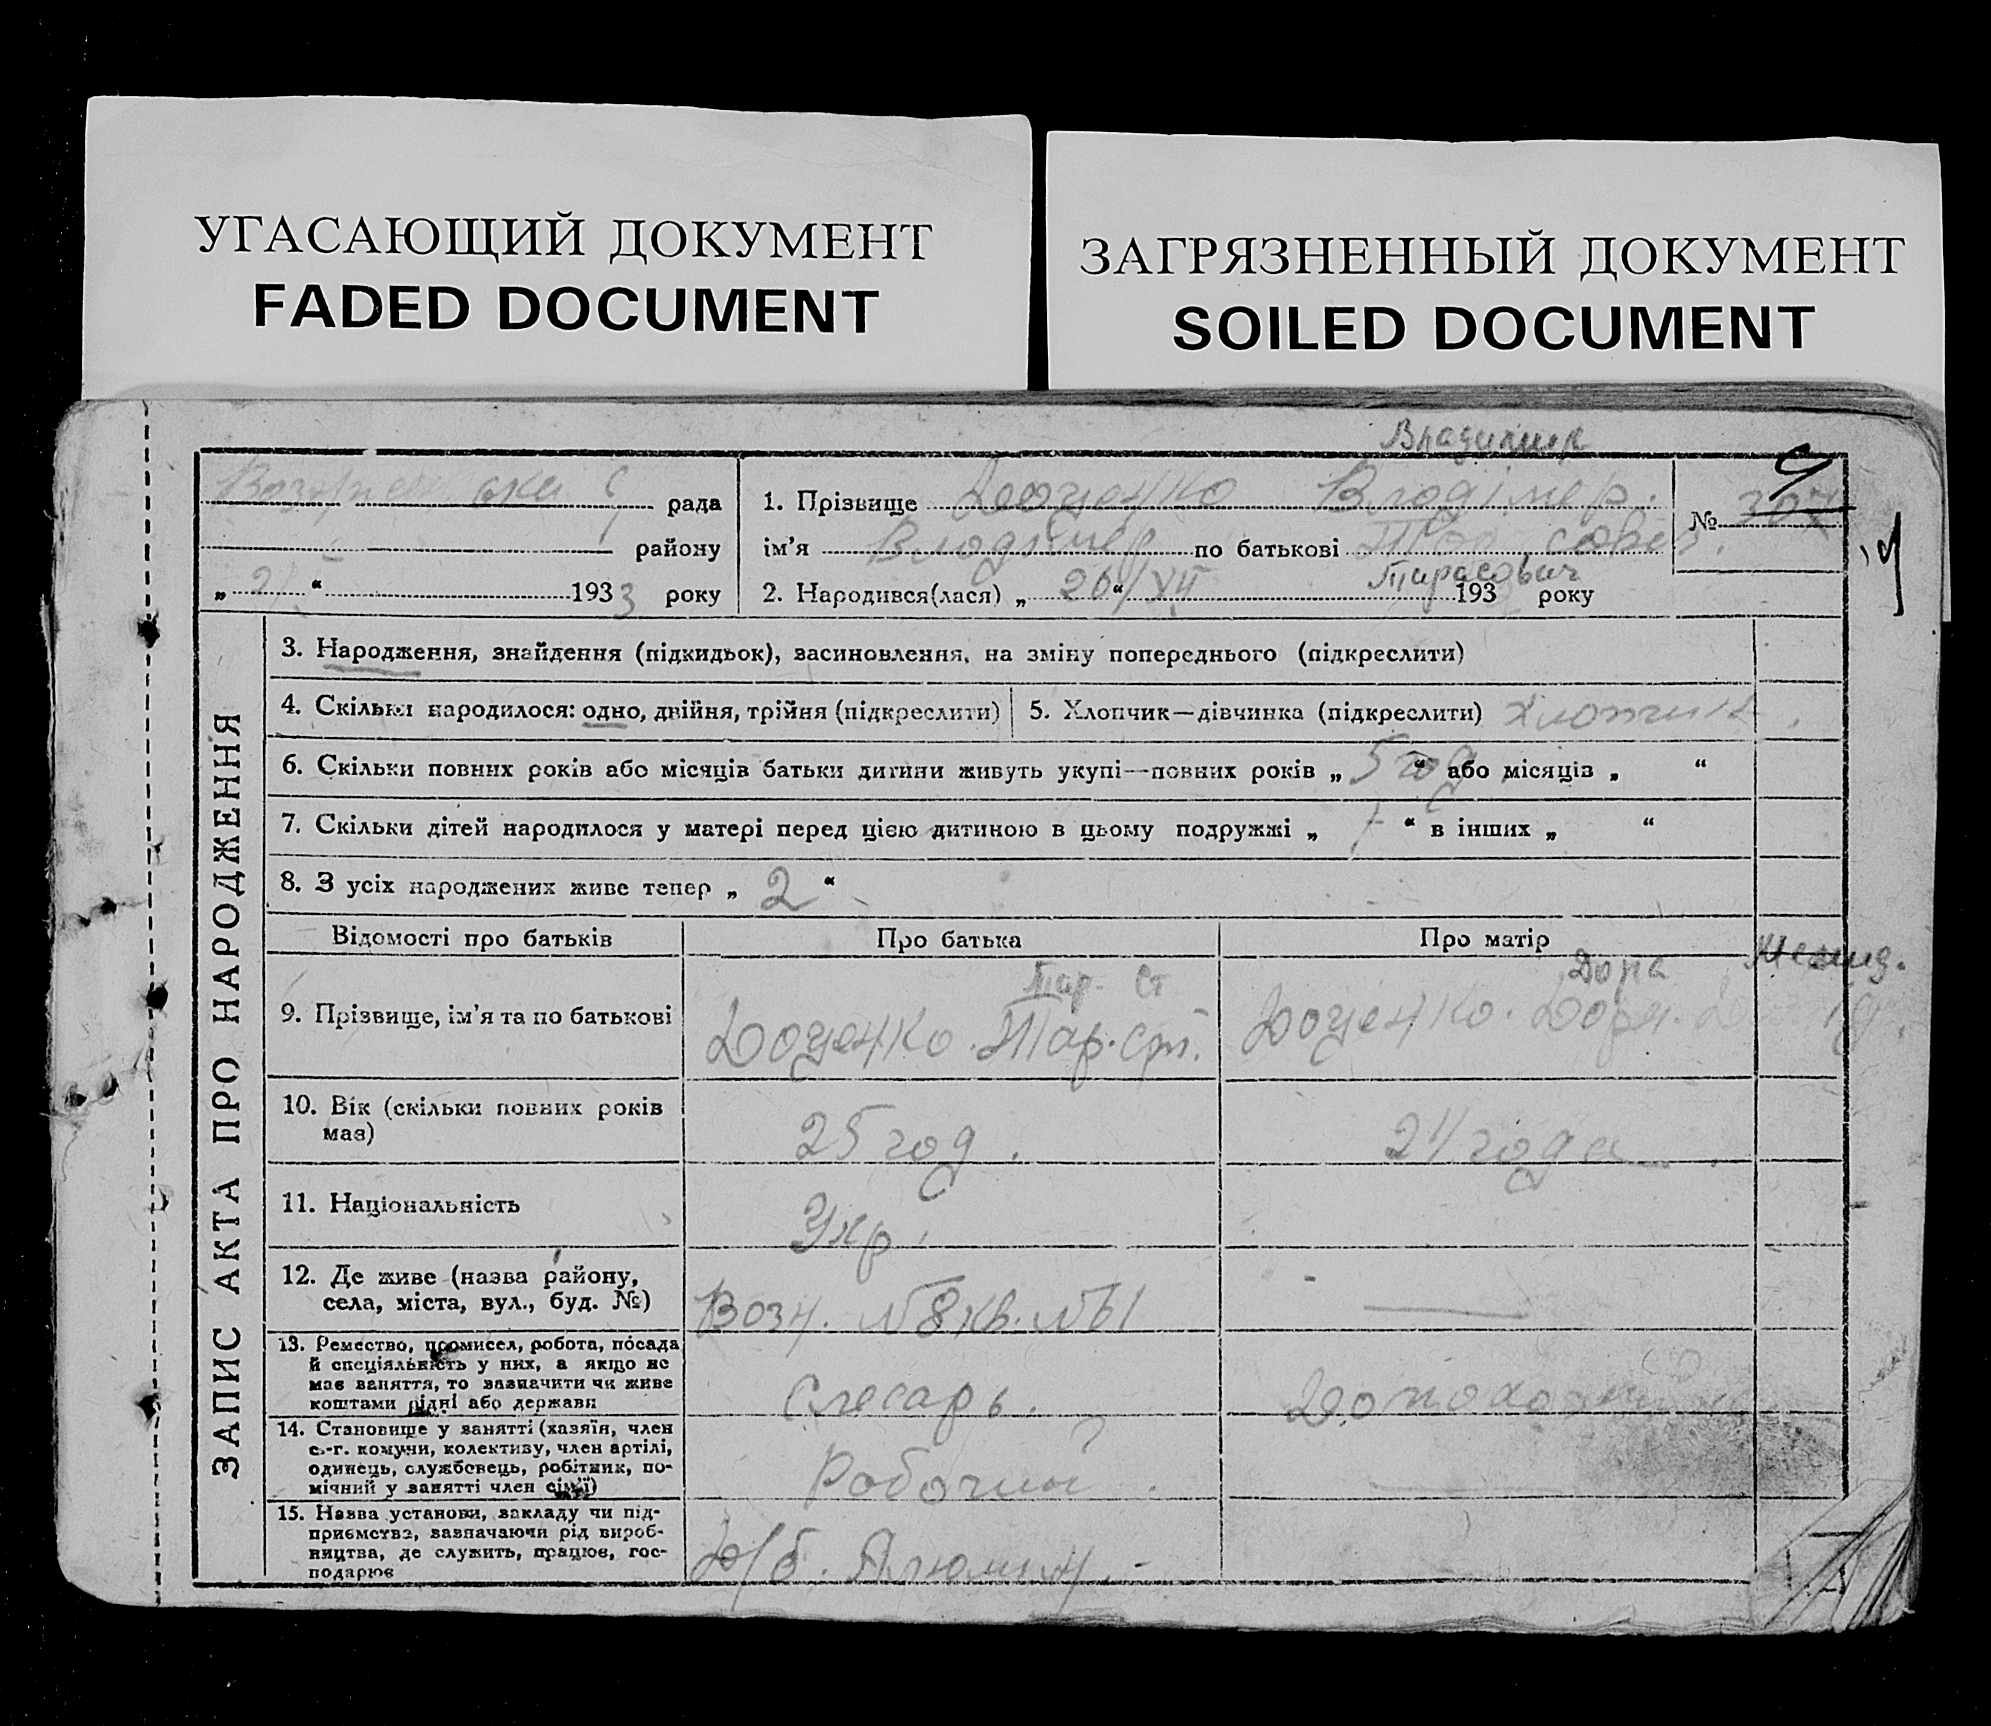 УГАСАЮЩИЙ ДОКУМЕНТ
FADED DOCUMENT
ЗАГРЯЗНЕННЫЙ ДОКУМЕНТ
SOILED DOCUMENT
Владимир
рада
району
193 3 року
1. Прізвище Доценко Владімер.
ім'я Владімер по батькові
Тарасович
2. Народився(лася) „ 26 “ XII 193 року
№ 307
ЗАПИС АКТА ПРО НАРОДЖЕННЯ
3. Народження, знайдення (підкидьок), засиновлення, на зміну попереднього (підкреслити)
4. Скільки народилося: одно, двійня, трійня (підкреслити)
5. Хлопчик—дівчинка (підкреслити) Хлопчик.
6. Скільки повних років або місяців батьки дитини живуть укупі—повних років „ 5 год “ або місяців „ “
7. Скільки дітей народилося у матері перед цією дитиною в цьому подружжі „ 1 “ в інших „ “
8. З усіх народжених живе тепер „ 2 “
Відомості про батьків
Про батька
Про матір
Тар. Ст
Дора
9. Прізвище, ім'я та по батькові
Доценко. Тар. Ст.
Доценко. Дора.
10. Вік (скільки повних років має)
25 год.
24 года
11. Національність
Укр.
12. Де живе (назва району, села, міста, вул., буд. №)
Возн. №8 кв. №61
—
13. Ремество, промисел, робота, посада
й спеціяльність у них, а якщо не
має заняття, то зазначити чи живе
коштами рідні або держави
Слесарь.
14. Становище у занятті (хазяїн, член
с.-г. комуни, колективу, член артілі,
одинець, службовець, робітник, по-
мічний у занятті член сім'ї)
Рабочий.
15. Назва установи, закладу чи під-
приємства, зазначаючи рід вироб-
ництва, де служить, працює, гос-
подарює
Алюмин.